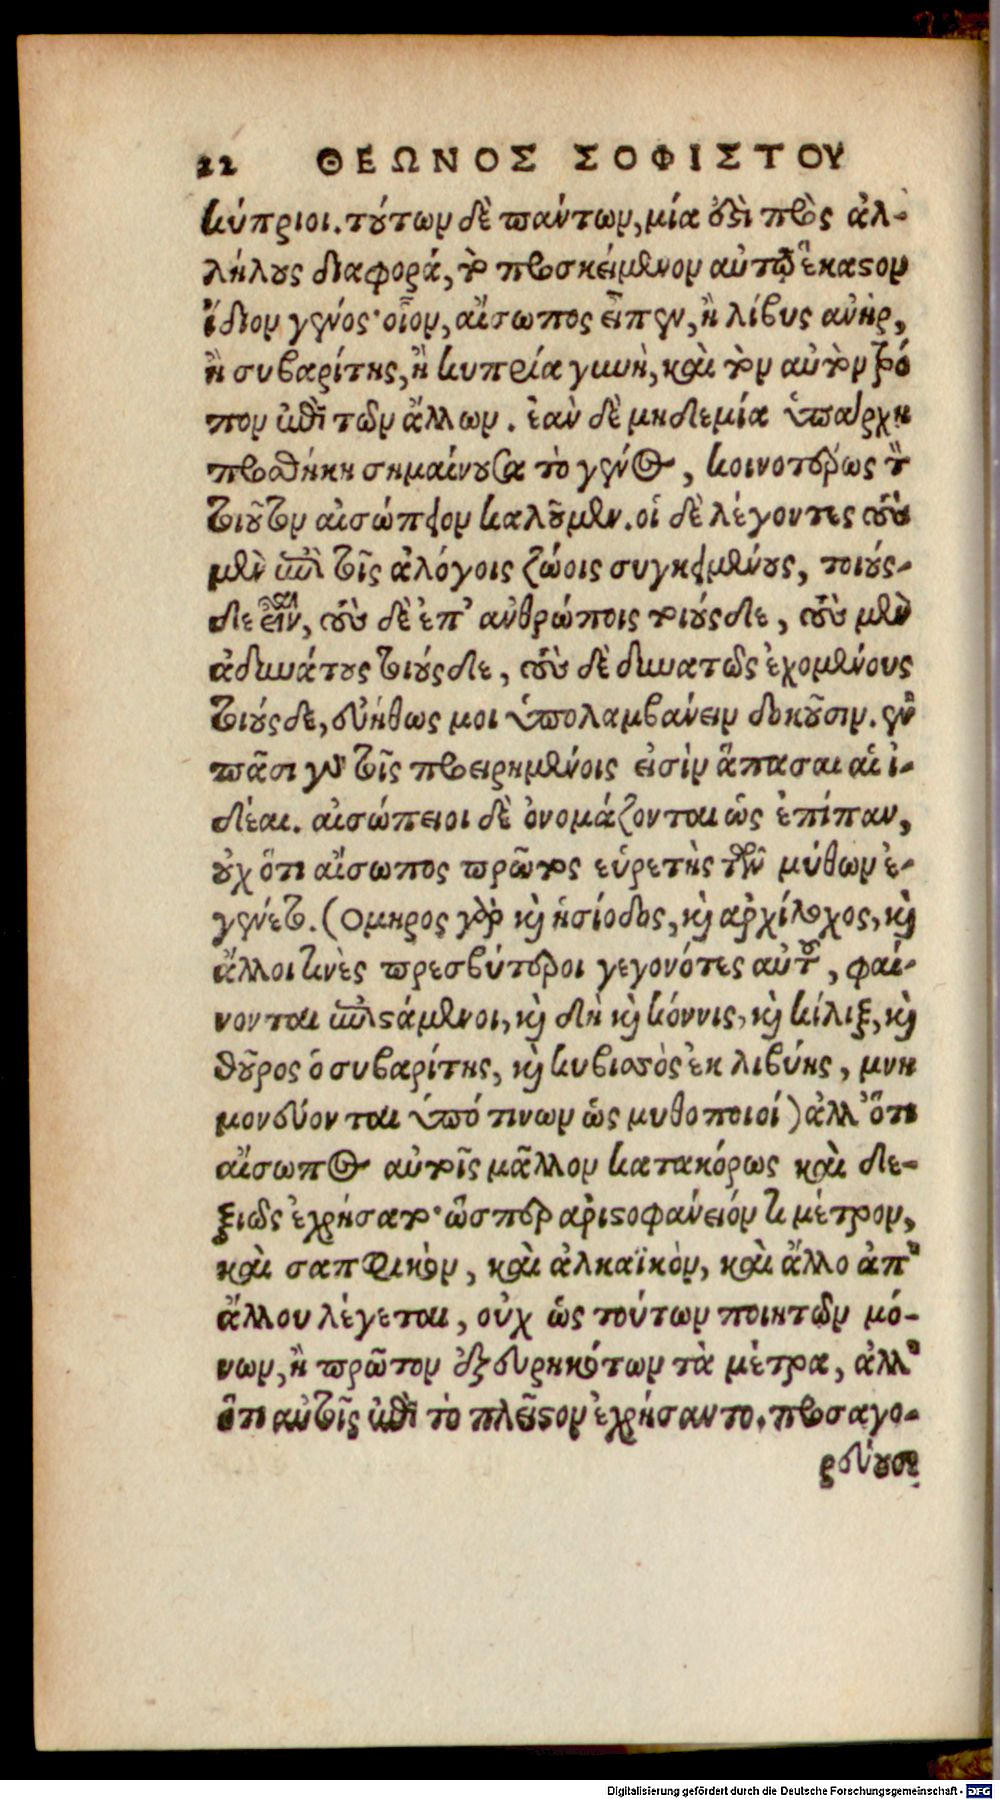 22 ΘΕΩΝΟΣ ΣΟΦΙΣΤΟΥ
κύπριοι. τούτων δὲ πάντων, μία ἐστὶ πρὸς ἀλ-
λήλους διαφορά, τὸ προσκείμενον αὐτῶν ἑκάστου
ἴδιον γένος· οἷον, αἴσωπος εἶπεν, ἢ λίβυς ἀνὴρ,
ἢ συβαρίτης, ἢ κυπρία γυνὴ, καὶ τὸν αὐτὸν τρό
πον ἐπὶ τῶν ἄλλων. ἐὰν δὲ μηδεμία ὑπάρχῃ
προσθήκη σημαίνουσα τὸ γένος, κοινοτέρως τὸν
τοιοῦτον αἰσώπειον καλοῦμεν. οἱ δὲ λέγοντες τοὺς
μὲν ἐπὶ τοῖς ἀλόγοις ζώοις συγκειμένους, τοιούς-
δε εἶναι, τοὺς δὲ ἐπ' ἀνθρώποις τοιούςδε, τοὺς μὲν
ἀδυνάτους τοιούςδε, τοὺς δὲ δυνατῶς ἐχομένους
τοιούςδε, εὐήθως μοι ὑπολαμβάνειν δοκοῦσιν. ἐν
πᾶσι γὰρ τοῖς προειρημένοις εἰσὶν ἅπασαι αἱ ἰ-
δέαι. αἰσώπειοι δὲ ὀνομάζονται ὡς ἐπίπαν,
οὐχ ὅτι αἴσωπος πρῶτος εὑρετὴς τῶν μύθων ἐ-
γένετο. (Ομηρος γὰρ καὶ ἡσίοδος, καὶ ἀρχίλοχος, καὶ
ἄλλοι τινὲς πρεσβύτεροι γεγονότες αὐτοῦ, φαί-
νονται ἐπιστάμενοι, καὶ δὴ καὶ κόννις, καὶ κίλιξ, καὶ
θοῦρος ὁ συβαρίτης, καὶ κυβιστὸς ἐκ λιβύης, μνη
μονεύονται ὑπό τινων ὡς μυθοποιοί) ἀλλ' ὅτι
αἴσωπος αὐτοῖς μᾶλλον κατακόρως καὶ δε-
ξιῶς ἐχρήσατο· ὥσπερ ἀριστοφάνειόν τι μέτρον,
καὶ σαπφικὸν, καὶ ἀλκαϊκὸν, καὶ ἄλλο ἀπ'
ἄλλου λέγεται, οὐχ ὡς τούτων ποιητῶν μό-
νων, ἢ πρῶτον ἐξευρηκότων τὰ μέτρα, ἀλλ'
ὅτι αὐτοῖς ἐπὶ τὸ πλεῖστον ἐχρήσαντο. προσαγο-
ρεύουσι
Digitalisierung gefördert durch die Deutsche Forschungsgemeinschaft - DFG